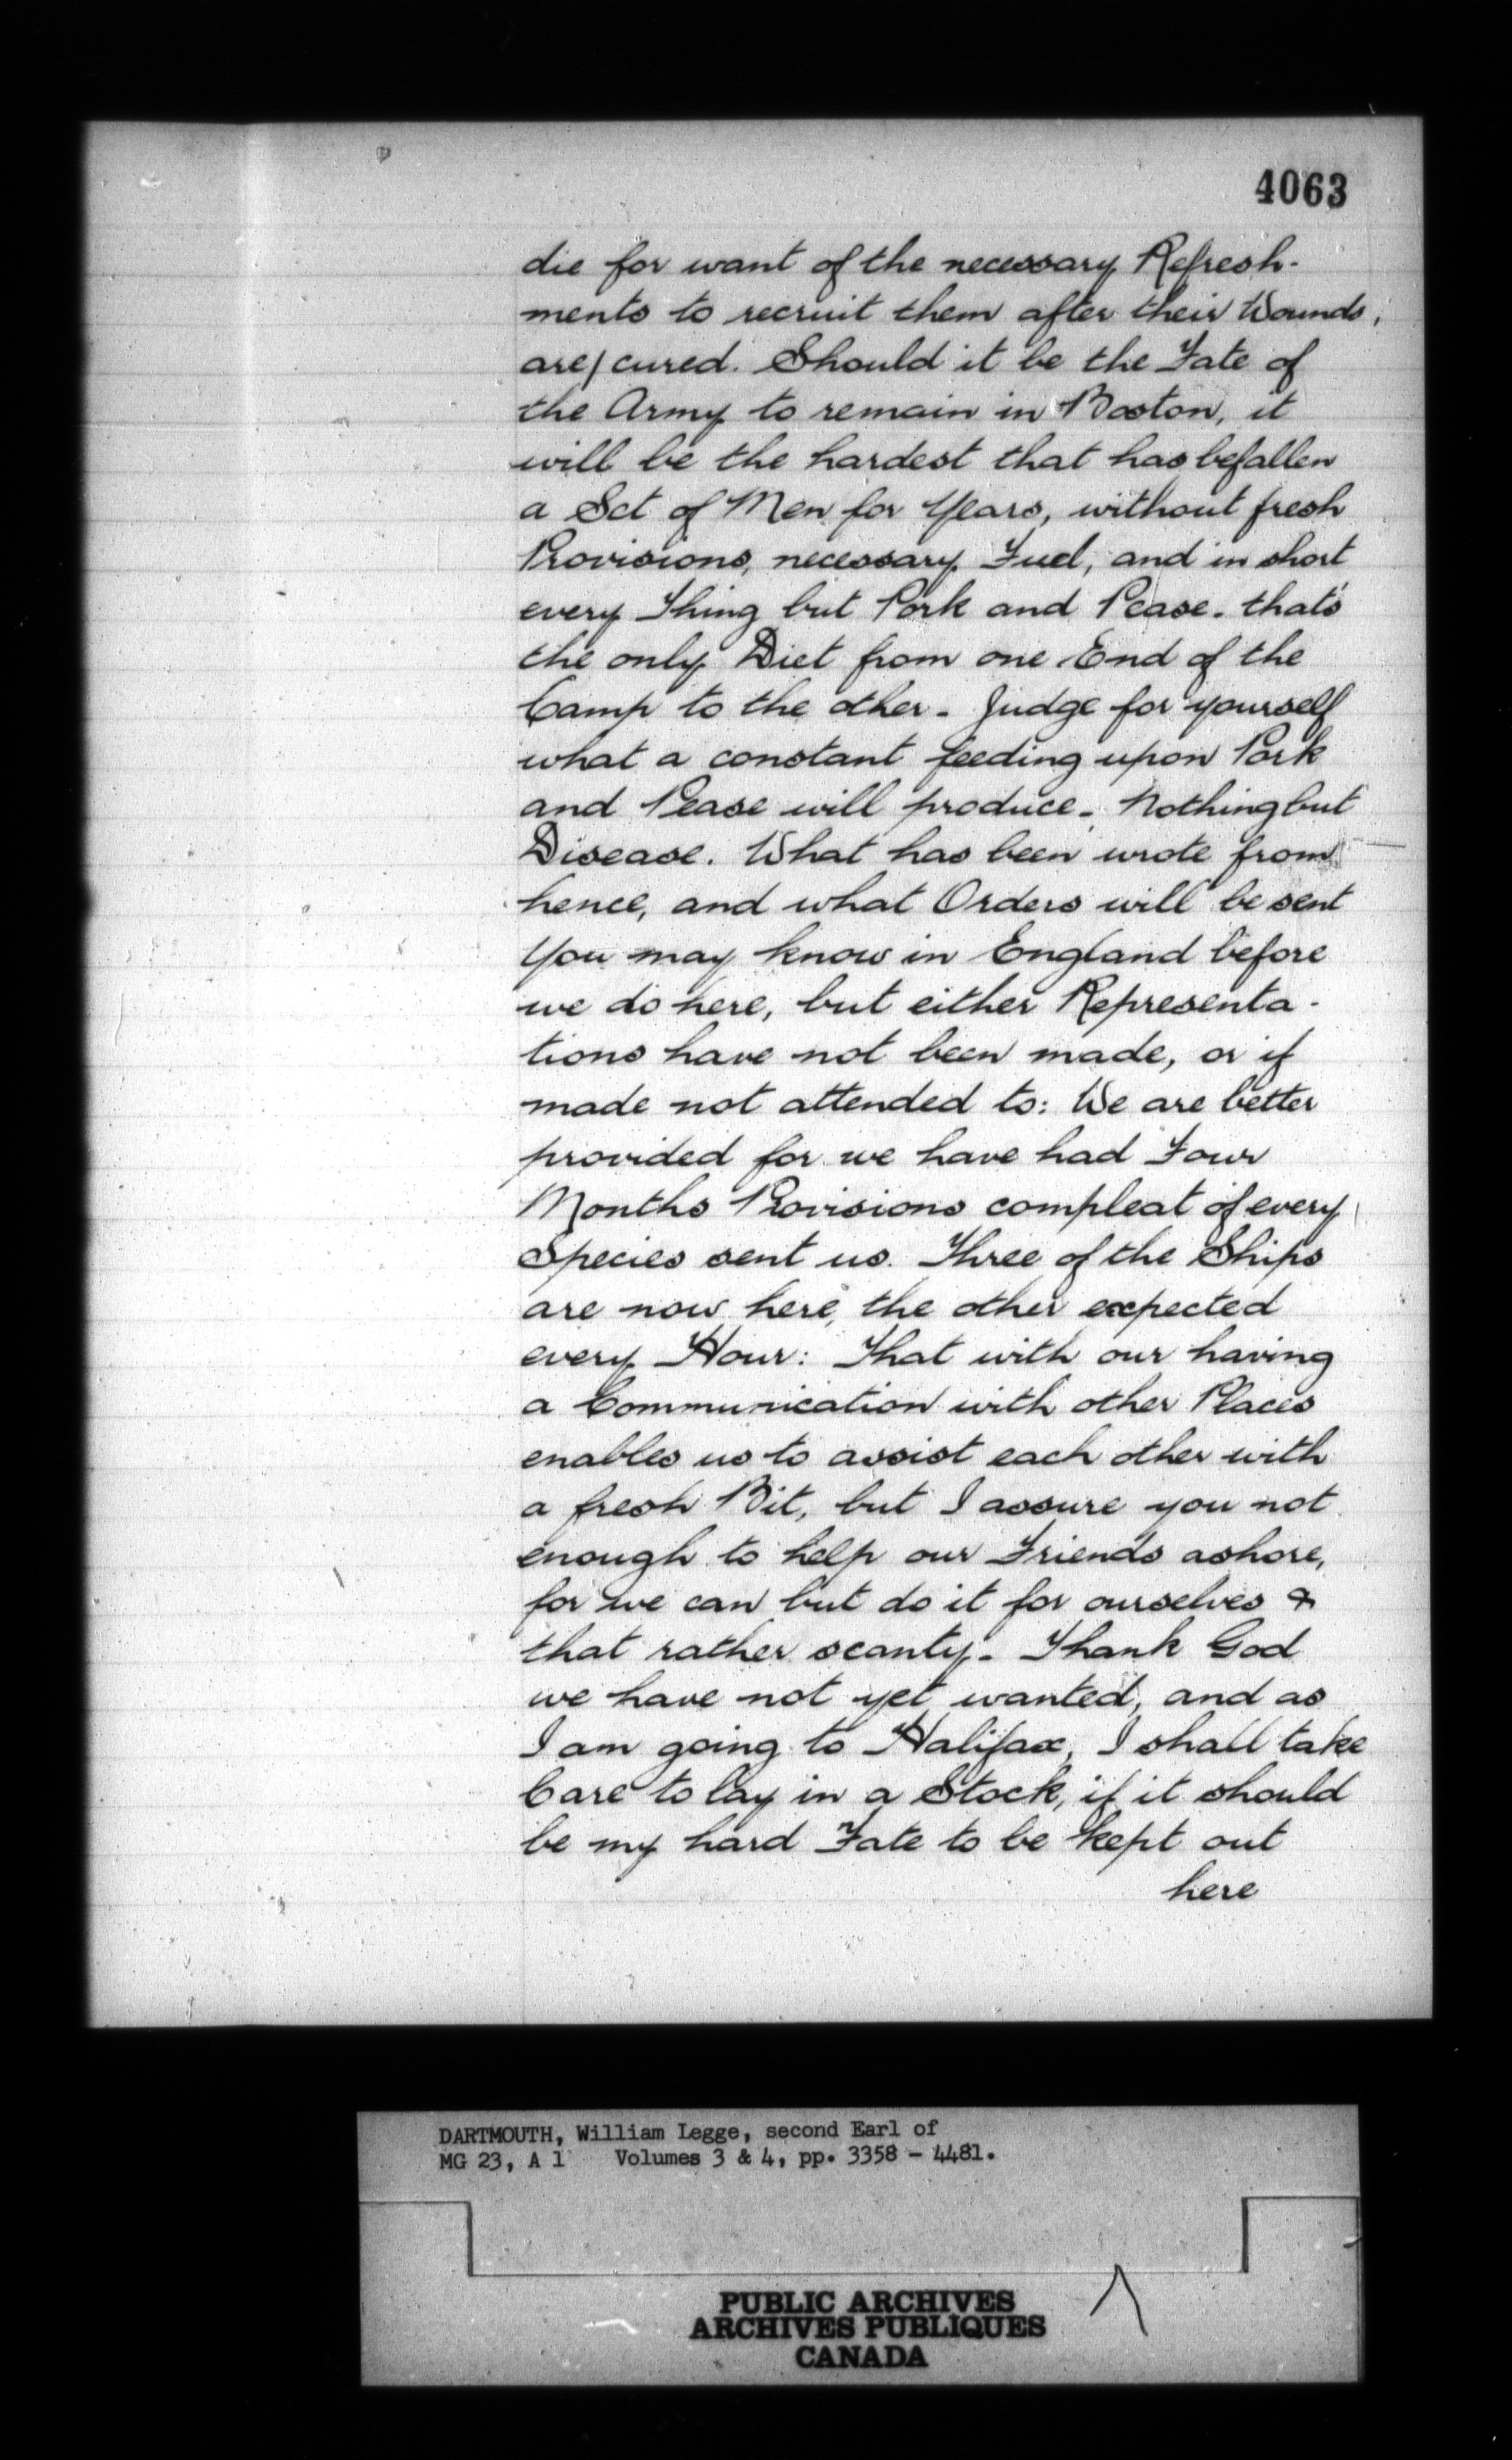 4063
die for want of the necessary Refresh-
ments to recruit them after their Wounds,
are/cured. Should it be the Fate of
the Army to remain in Boston, it
will be the hardest that has befallen
a Set of Men for Years, without fresh
Provisions, necessary Fuel, and in short
every Thing but Pork and Pease - that's
the only Diet from one End of the
Camp to the other - Judge for yourself
what a constant feeding upon Pork
and Pease will produce - Nothing but
Disease. What has been wrote from
hence, and what Orders will be sent
You may know in England before
we do here, but either Representa-
tions have not been made, or if
made not attended to: We are better
provided for we have had Four
Months Provisions compleat of every
Species sent us. Three of the Ships
are now here, the other expected
every Hour: That with our having
a Communication with other Places
enables us to assist each other with
a fresh Bit, but I assure you not
enough to help our Friends ashore,
for we can but do it for ourselves &
that rather scanty - Thank God
we have not yet wanted, and as
I am going to Halifax, I shall take
Care to lay in a Stock, if it should
be my hard Fate to be kept out
here
DARTMOUTH, William Legge, second Earl of
MG 23, A 1 Volumes 3 & 4, pp. 3358 - 4481.
PUBLIC ARCHIVES
ARCHIVES PUBLIQUES
CANADA